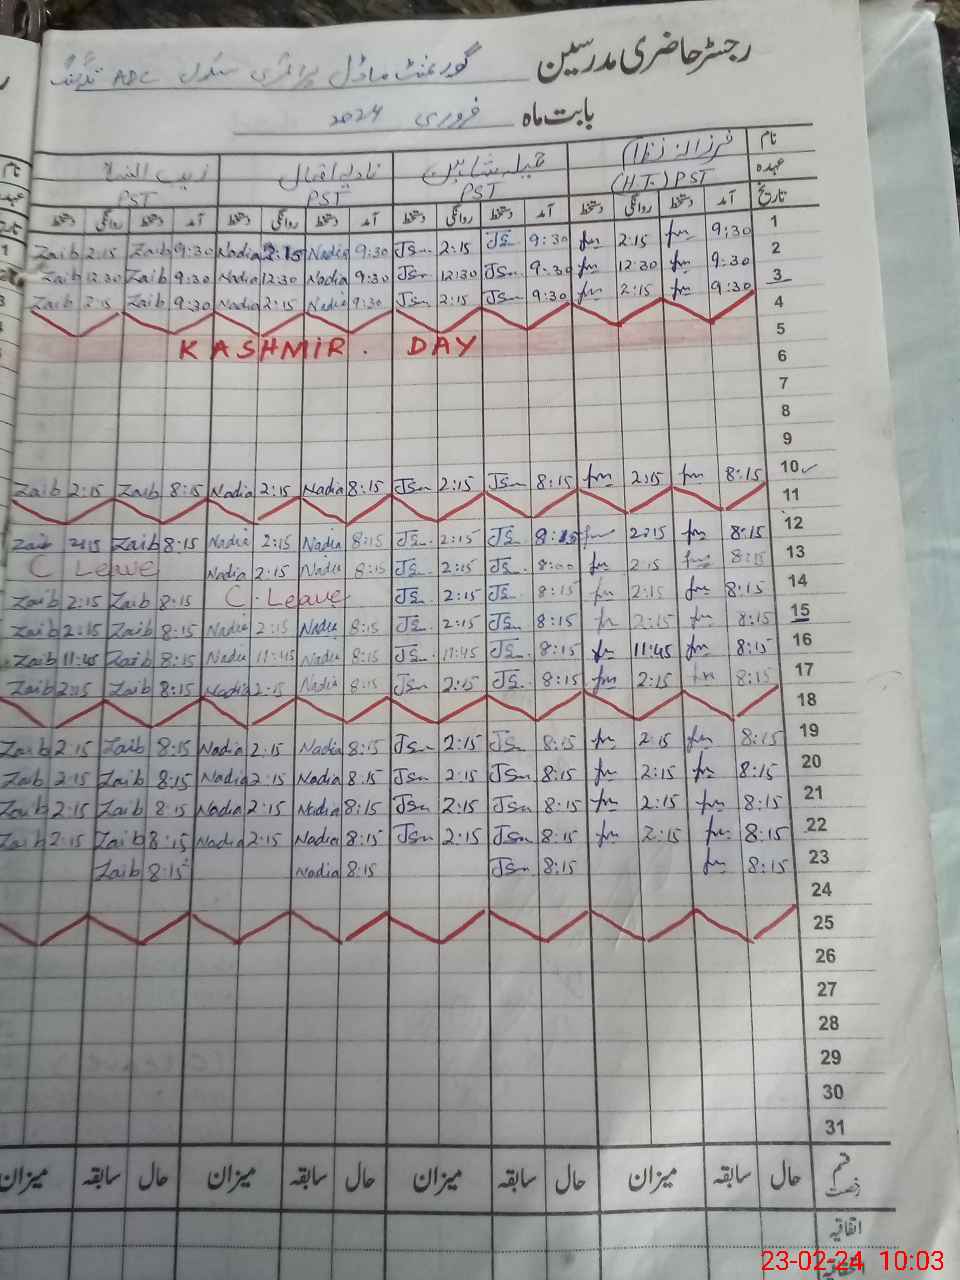 رجسٹر حاضری مدرسین گورنمنٹ ماڈل پرائمری سکول ADC
بابت ماہ فروری 2024
نام نادیہ اقبال زیب النساء
عہدہ (H.T.) PST PST PST PST
تاریخ آمد دستخط روانگی دستخط آمد دستخط روانگی دستخط آمد دستخط روانگی دستخط آمد دستخط روانگی دستخط
1 9:30 fm 2:15 fm 9:30 JS 2:15 JSm 9:30 Nadia 2:15 Nadia 9:30 Zaib 2:15 Zaib
2 9:30 fm 12:30 fm 9:30 JSm 12:30 JSm 9:30 Nadia 12:30 Nadia 9:30 Zaib 12:30 Zaib
3 9:30 fm 2:15 fm 9:30 JSm 2:15 JSm 9:30 Nadia 2:15 Nadia 9:30 Zaib 2:15 Zaib
4
5 KASHMIR. DAY
6
7
8
9
10 8:15 fm 2:15 fm 8:15 JSm 2:15 JSm 8:15 Nadia 2:15 Nadia 8:15 Zaib 2:15 Zaib
11
12 8:15 fm 2:15 fm 8:15 JS 2:15 JS 8:15 Nadia 2:15 Nadia 8:15 Zaib 2:15 Zaib
13 8:15 fm 2:15 fm 8:00 JS 2:15 JS 8:15 Nadia 2:15 Nadia C Leave
14 8:15 fm 2:15 fm 8:15 JS 2:15 JS C. Leave 8:15 Zaib 2:15 Zaib
15 8:15 fm 2:15 fm 8:15 JS 2:15 JS 8:15 Nadia 2:15 Nadia 8:15 Zaib 2:15 Zaib
16 8:15 fm 11:45 fm 8:15 JS 11:45 JS 8:15 Nadia 11:45 Nadia 8:15 Zaib 11:45 Zaib
17 8:15 fm 2:15 fm 8:15 JS 2:15 JSm 8:15 Nadia 2:15 Nadia 8:15 Zaib 2:15 Zaib
18
19 8:15 fm 2:15 fm 8:15 JS 2:15 JSm 8:15 Nadia 2:15 Nadia 8:15 Zaib 2:15 Zaib
20 8:15 fm 2:15 fm 8:15 JSm 2:15 JSm 8:15 Nadia 2:15 Nadia 8:15 Zaib 2:15 Zaib
21 8:15 fm 2:15 fm 8:15 JSm 2:15 JSm 8:15 Nadia 2:15 Nadia 8:15 Zaib 2:15 Zaib
22 8:15 fm 2:15 fm 8:15 JSm 2:15 JSm 8:15 Nadia 2:15 Nadia 8:15 Zaib 2:15 Zaib
23 8:15 fm 8:15 JSm 8:15 Nadia 8:15 Zaib
24
25
26
27
28
29
30
31
قسم رخصت حال سابقہ میزان حال سابقہ میزان حال سابقہ میزان حال سابقہ میزان
اتفاقیہ
23-02-24 10:03